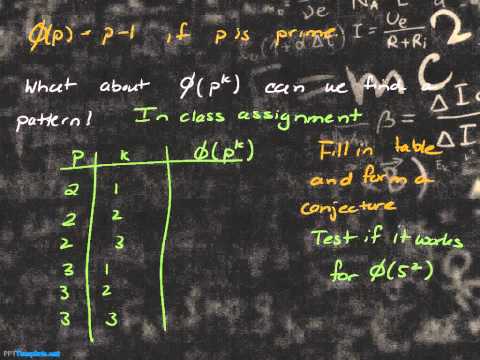 φ(p) = p-1, if p is prime
What about φ(p^k) can we find a
pattern! In class assignment
p k φ(p^k)
2 1
2 2
2 3
3 1
3 2
3 3
Fill in table
and form a
conjecture
Test if it works
for φ(5²)
I = U_e / R+R_i
2
C
β = ΔI
PPTTemplate.net